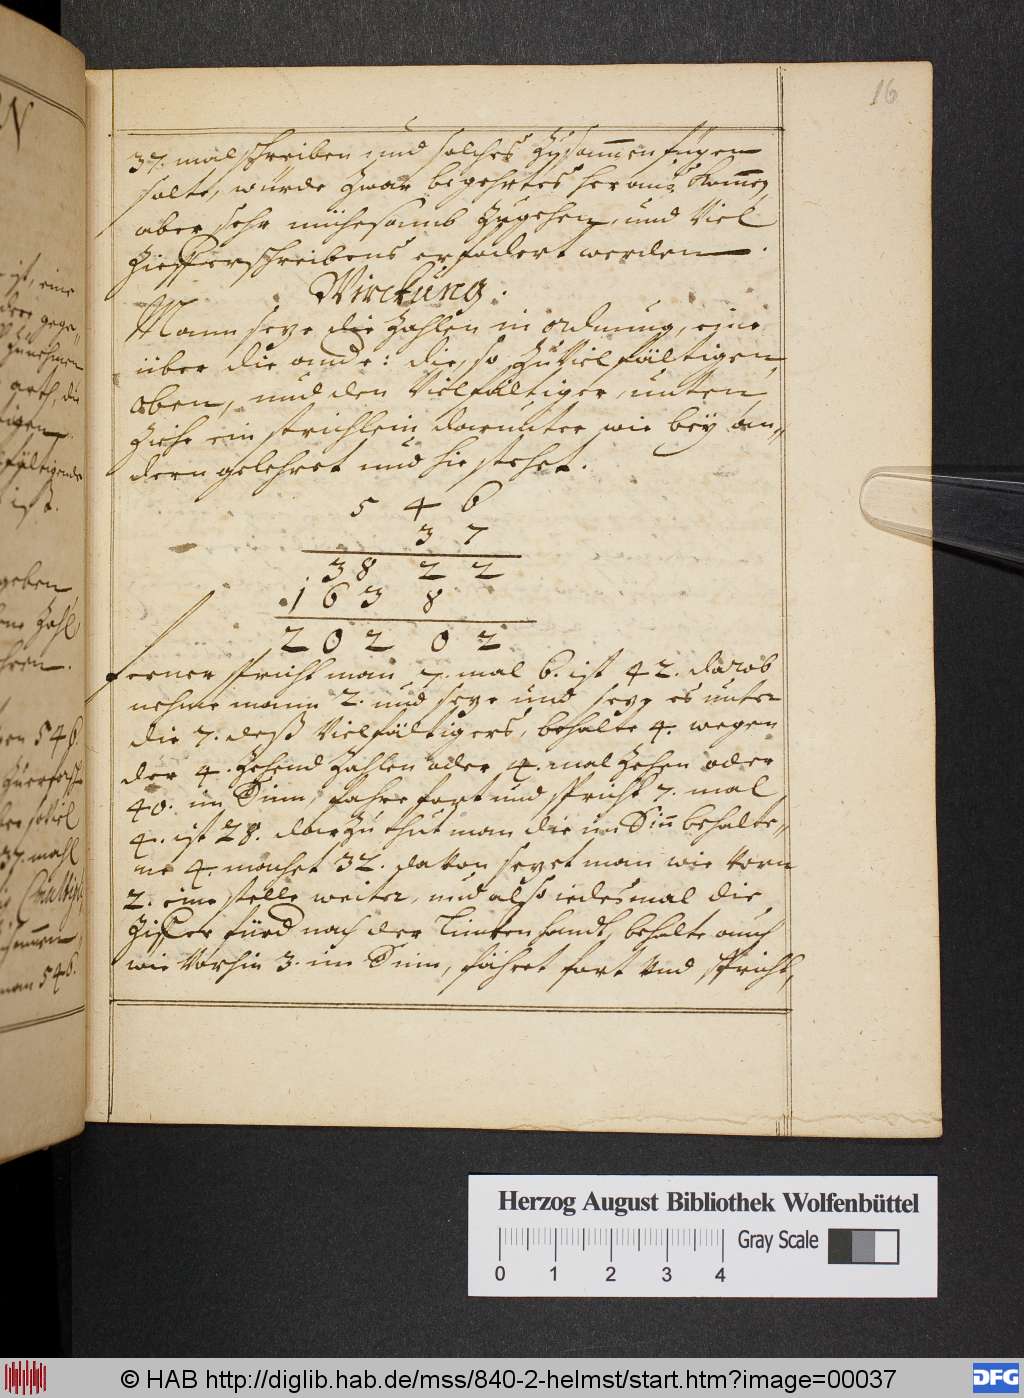 16
37. mal schreiben und solches Zusammen fügen
solte, würde zwar begehrtes herauß kom̄en,
aber sehr mühesamb zugehen, und Viel
Ziefferschreibens erfodert werden.
Wirckung.
Mann seze die Zahlen in ordnung, eine
über die ande: die, so zu Vielfältigen,
oben, und den Vielfältiger, unten,
Ziehe ein strichlein darunter wie beÿ an„
dern gelehret und hie stehet.
5 4 6
3 7
3 8 2 2
1 6 3 8
2 0 2 0 2
ferner spricht man 7. mal 6. ist 42. darob
nehme mann 2. und seze und seze es unter
die 7. deß Vielfältigers, behalte 4. wegen
der 4. Zehend Zahlen oder 4. mal Zehen oder
40. im Sinn, fahre fort und spricht 7. mal
4. ist 28. darzu thut man die im Sin̄ behalte„
ne 4. machet 32. davon sezet man wie vorn
2. eine stelle weiter, und also iedesmal die
Ziffer fürd nach der Lincken handt, behalte auch
wie Vorhin 3. im Sinn, fähret fort und spricht,
ist, eine
gege„
Zunehmen
arth, die
ist.
geben,
Zahl
546.
37. mahl
man 546.
Herzog August Bibliothek Wolfenbüttel
Gray Scale
0 1 2 3 4
© HAB http://diglib.hab.de/mss/840-2-helmst/start.htm?image=00037
DFG